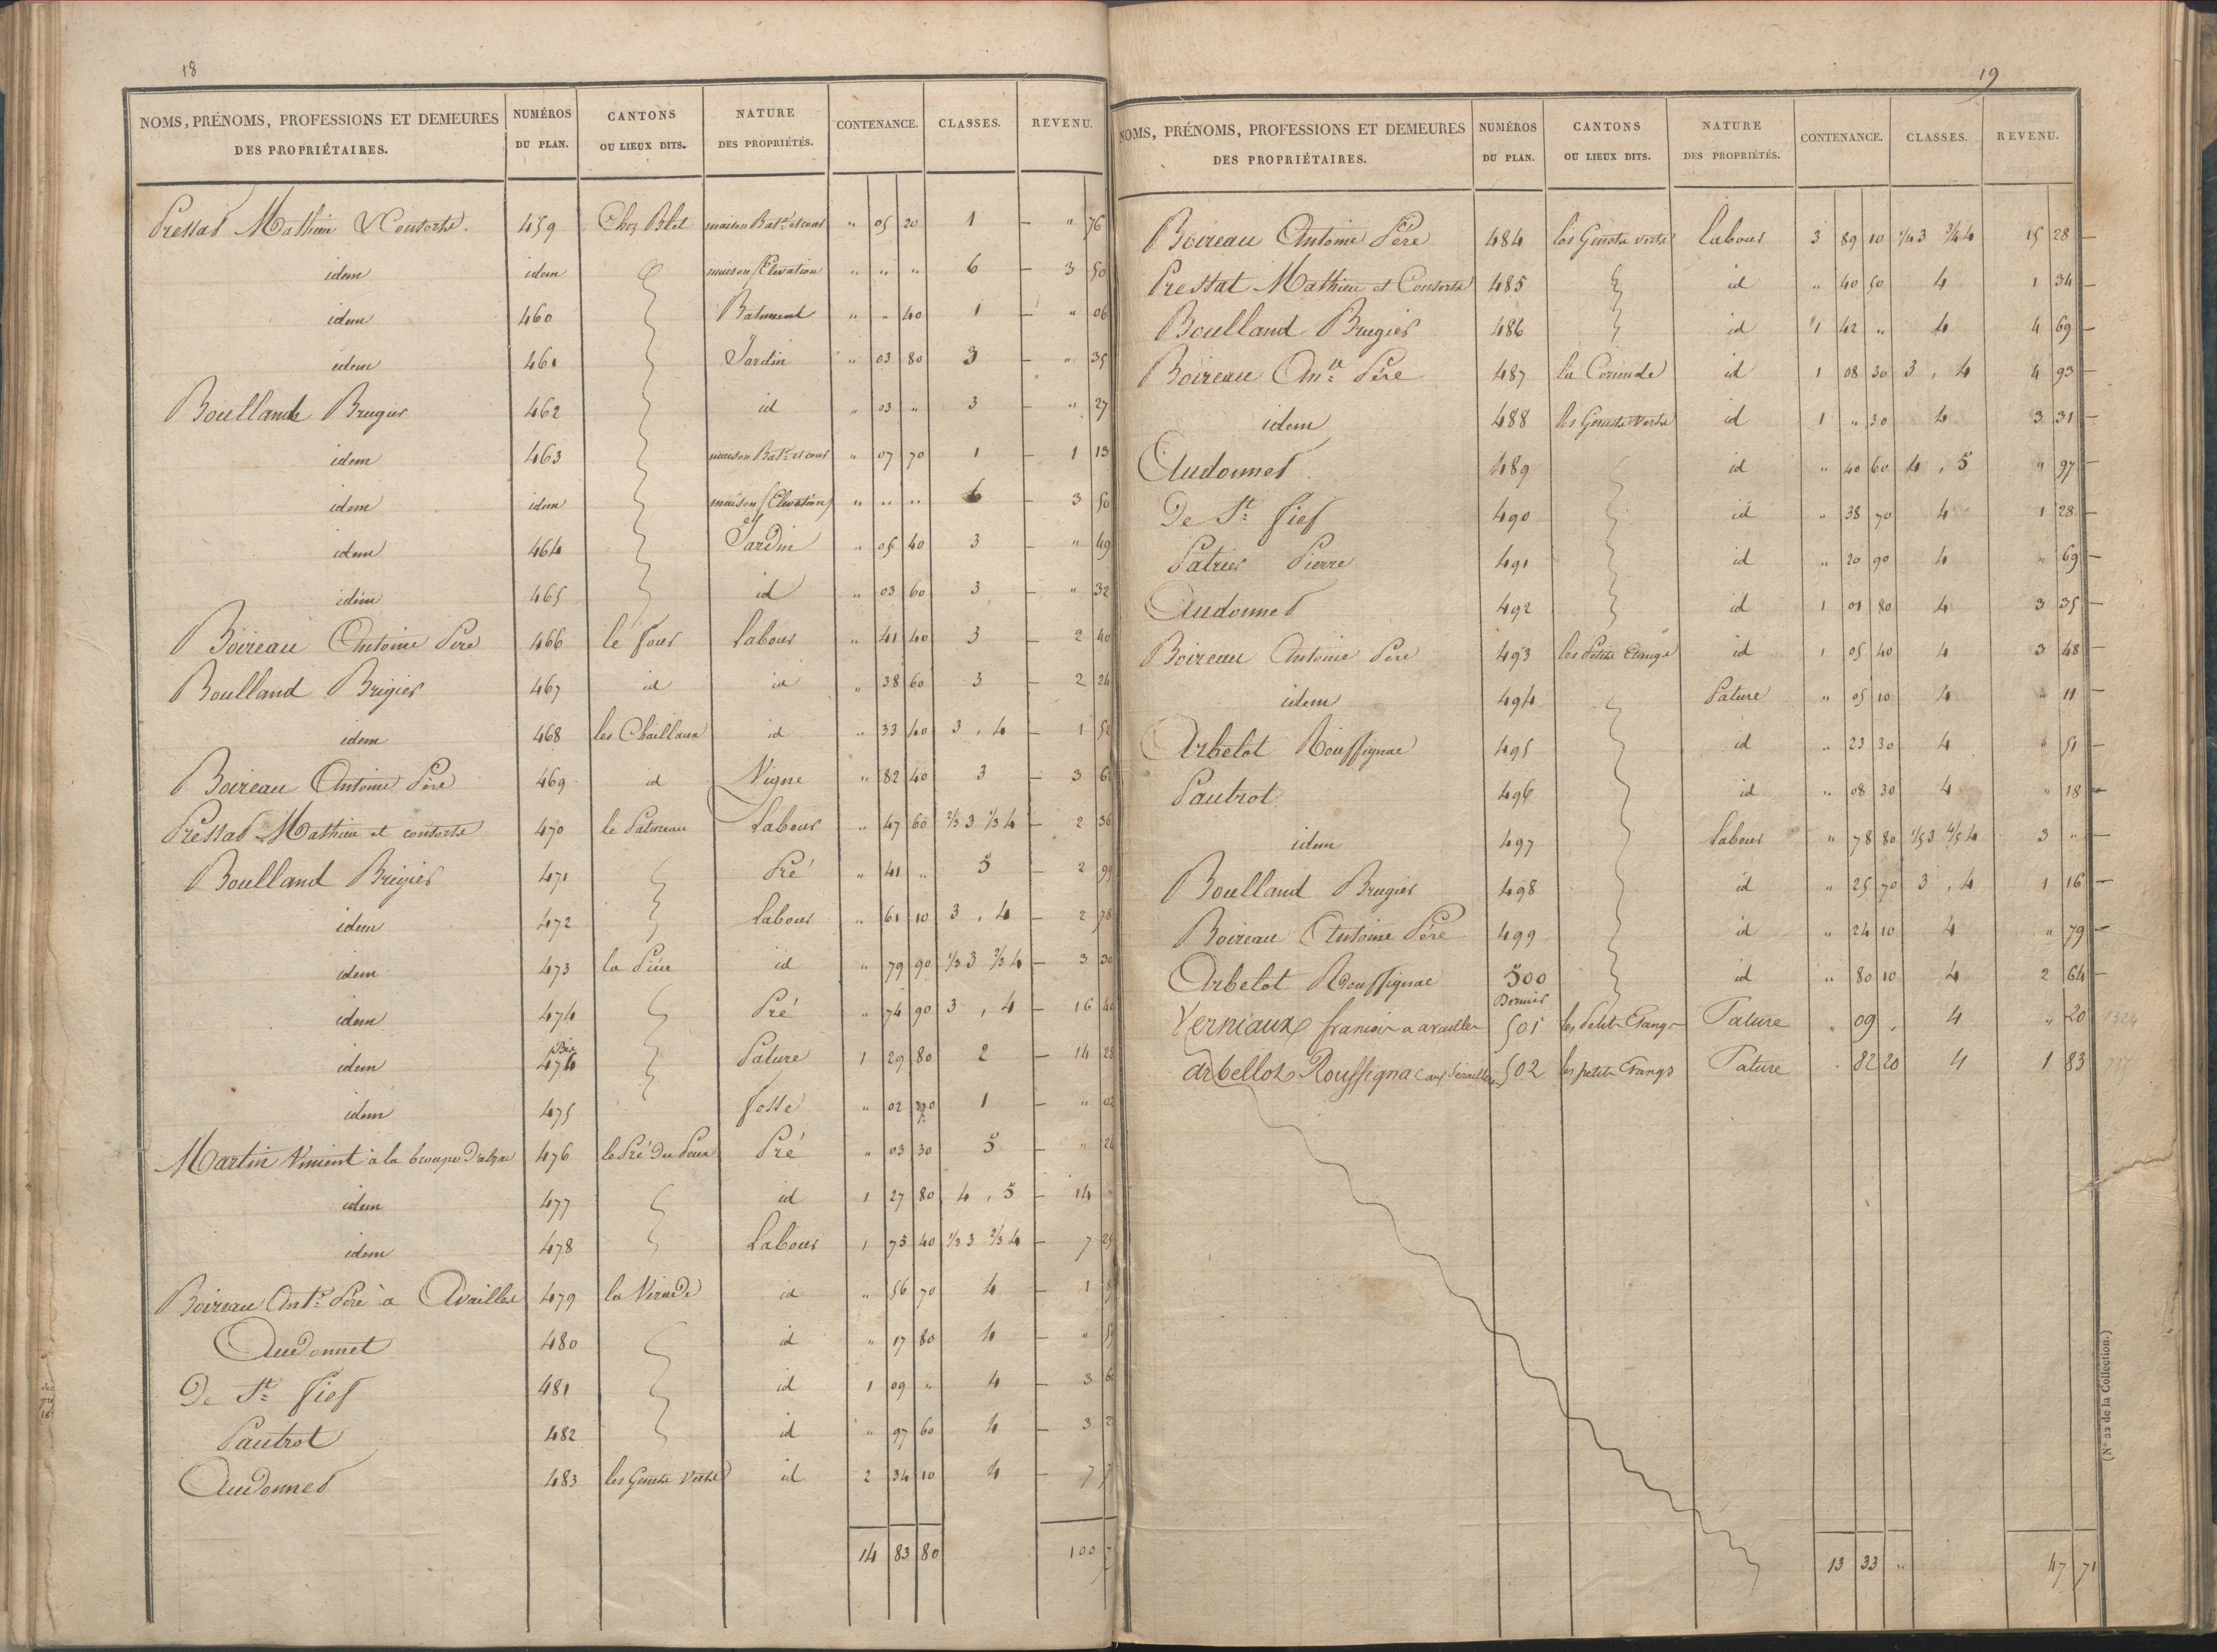 18
NOMS, PRÉNOMS, PROFESSIONS ET DEMEURES DES PROPRIÉTAIRES. NUMÉROS DU PLAN. CANTONS OU LIEUX DITS. NATURE DES PROPRIÉTÉS. CONTENANCE. CLASSES. REVENU.
Pressat Mathieu & Consorts. 459 Chez Blet maison Batt. et cour " 05 20 1 — " 76
idem idem maison (Elevation " " " 6 — 3 50
idem 460 Batiment " " 40 1 — " 06
idem 461 Jardin " 03 80 3 — " 35
Boulland Brugier 462 id " 03 " 3 — " 27
idem 463 maison Batt. et cour " 07 70 1 — 1 13
idem idem maison (Elevation) " " " 6 — 3 50
idem 464 Jardin " 05 40 3 — " 49
idem 465 id " 03 60 3 — " 32
Boireau Antoine Père 466 le four labour " 41 40 3 — 2 40
Boulland Brugier 467 id id " 38 60 3 — 2 24
idem 468 les Chaillaux id " 33 40 3 , 4 — 1
Boireau Antoine Père 469 id Vigne " 82 40 3 — 3
Pressat Mathieu et consorts 470 le Patureau labour " 47 60 2/3 3 1/3 4 — 2 36
Boulland Brugier 471 Pré " 41 " 5 — 2 99
idem 472 labour " 61 10 3 , 4 — 2 78
idem 473 id " 79 90 1/3 3 2/3 4 — 3 30
idem 474 Pré " 74 90 3 , 4 — 16
idem 474 Bis Pature 1 29 80 2 — 14 28
idem 475 fosse " 02 1 — " 02
Martin Vincent à la 476 le Pré du Pré " 03 30 5 — " 24
idem 477 id 1 27 80 4 , 5 — 14
idem 478 labour 1 75 40 1/3 3 2/3 4 — 7 25
Boireau Ant. Père à Availles 479 la Virade id " 56 70 4 — 1
Audonnet 480 id " 17 80 4 — "
De St. fief 481 id 1 09 " 4 — 3
Pautrot 482 id " 97 60 4 — 3
Audonnet 483 les Genets Verts id 2 34 10 4 — 7
14 83 80 100
19
NOMS, PRÉNOMS, PROFESSIONS ET DEMEURES DES PROPRIÉTAIRES. NUMÉROS DU PLAN. CANTONS OU LIEUX DITS. NATURE DES PROPRIÉTÉS. CONTENANCE. CLASSES. REVENU.
Boireau Antoine Père 484 les Genets verts labour 3 89 10 1/4 3 3/4 4 15 28 —
Pressat Mathieu et Consorts 485 id " 40 50 4 1 34 —
Boulland Brugier 486 id 1 42 " 4 4 69 —
Boireau Ant. Père 487 la id 1 08 30 3 , 4 4 93 —
idem 488 les Genets Verts id 1 " 30 4 3 31 —
Audonnet 489 id " 40 60 4 , 5 " 97 —
De St. fief 490 id " 38 70 4 1 28 —
Patrier Pierre 491 id " 20 90 4 " 69 —
Audonnet 492 id 1 01 80 4 3 35 —
Boireau Antoine Père 493 les Petits Etangs id 1 05 40 4 3 48 —
idem 494 Pature " 05 10 4 " 11 —
Arbelot Rouffignac 495 id " 23 30 4 " 51 —
Pautrot 496 id " 08 30 4 " 18 —
idem 497 labour " 78 80 1/5 3 4/5 4 3 " —
Boulland Brugier 498 id " 25 70 3 , 4 1 16 —
Boireau Antoine Père 499 id " 24 10 4 " 79 —
Arbelot Rouffignac 500 id " 80 10 4 2 64 —
Dernier
Verniaux françois a availles 501 les Petits Etangs Pature " 09 " 4 " 20 1324
arbellot Rouffignac 502 les petits Etangs Pature " 82 20 4 1 83
13 33 " 47 71
(N° 22 de la Collection.)